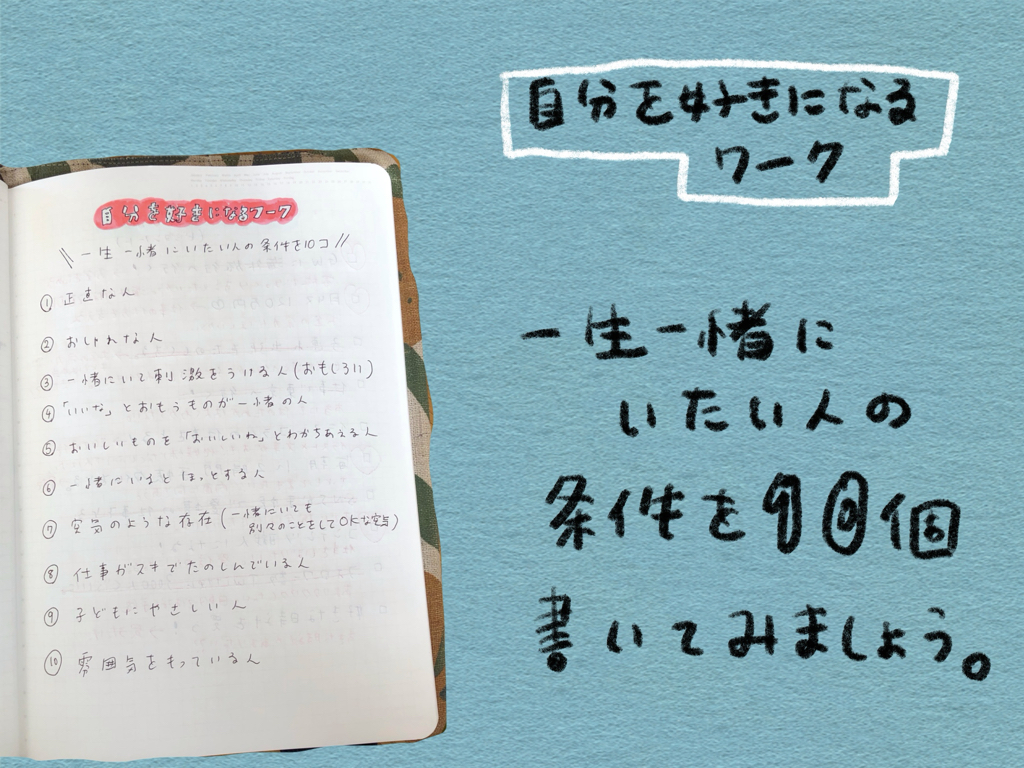 自分を好きになるワーク
\\一生一緒にいたい人の条件を10コ//
① 正直な人
② おしゃれな人
③ 一緒にいて刺激をうける人(おもしろい)
④ 「いいな」とおもうものが一緒の人
⑤ おいしいものを「おいしいね」とわかちあえる人
⑥ 一緒にいるとほっとする人
⑦ 空気のような存在(一緒にいても
別々のことをしてOKな
⑧ 仕事がスキでたのしんでいる人
⑨ 子どもにやさしい人
⑩ 雰囲気をもっている人
自分を好きになる
ワーク
一生一緒に
いたい人の
条件を10個
書いてみましょう。